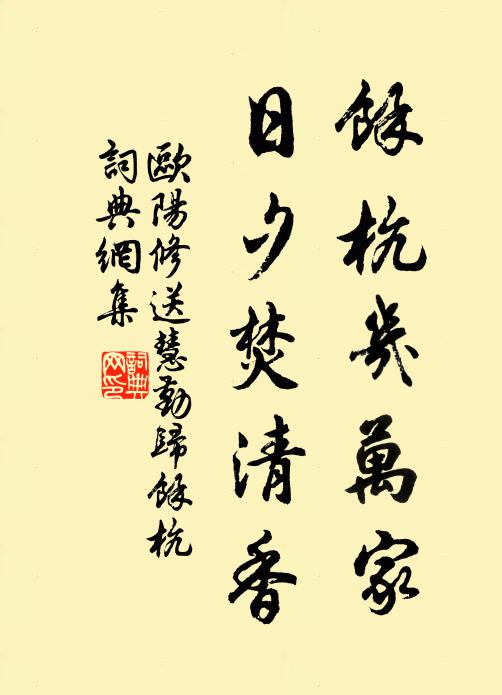 餘杭幾萬家
日夕焚清香
歐陽修送慧勤歸餘杭
詞典網集
詞典网印